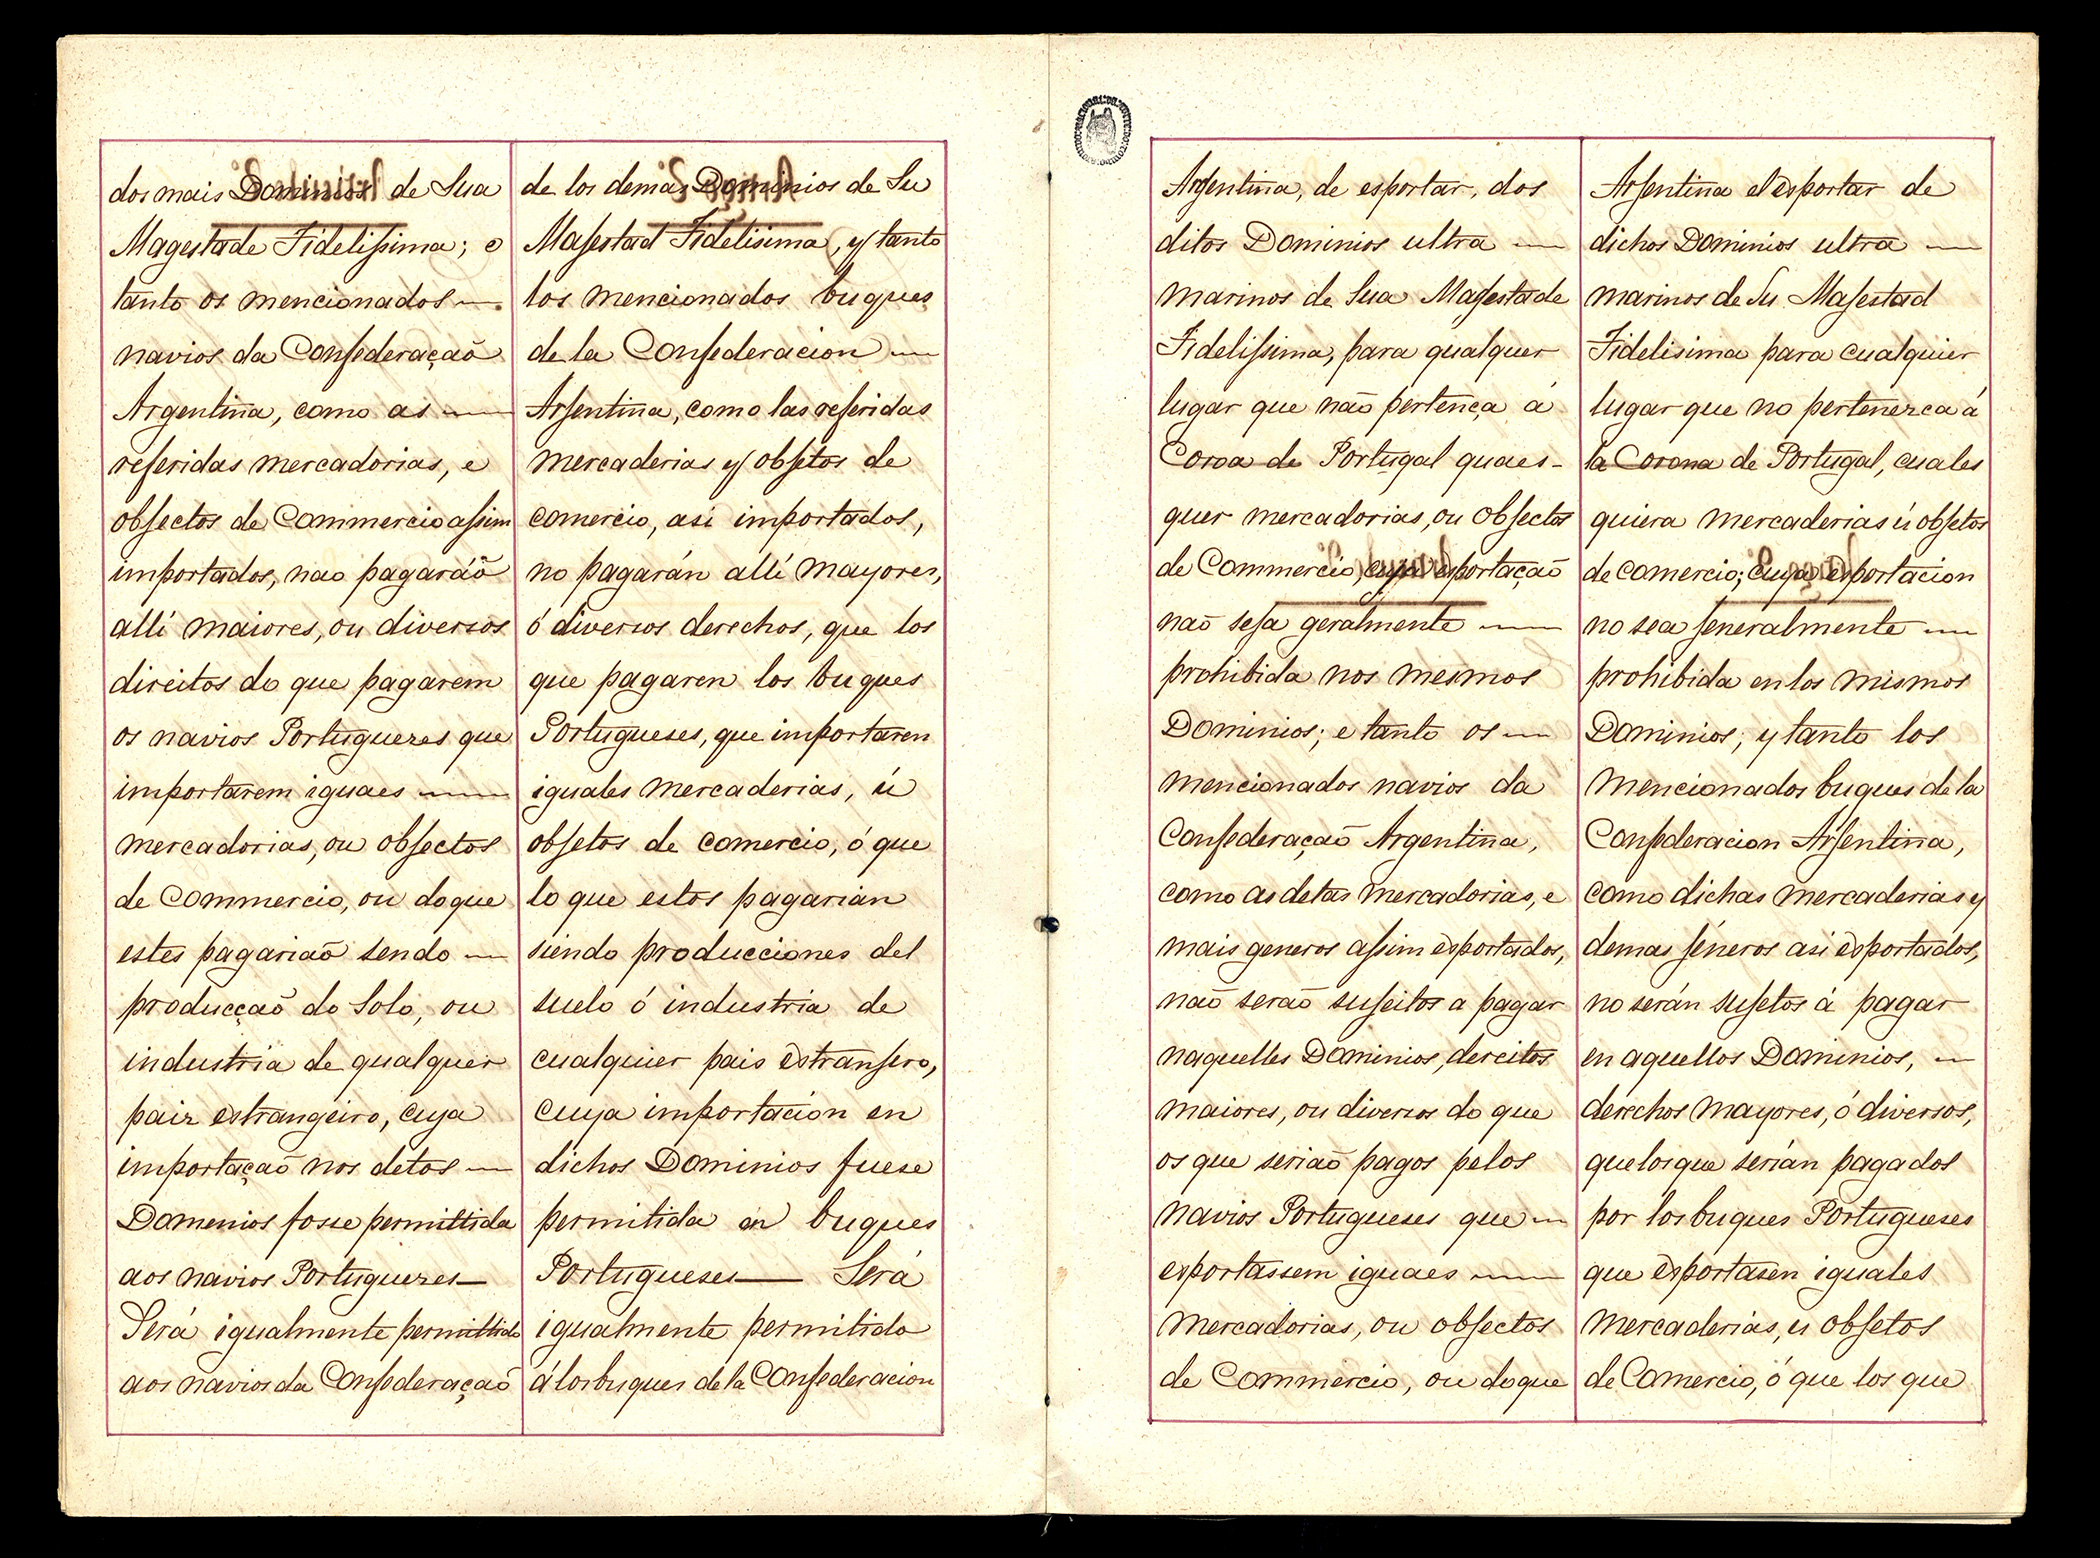 dos mais Dominios de Sua
Magestade Fidelissima; e
tanto os mencionados —
navios da Confederação
Argentina, como as —
referidas mercadorias, e
objectos de Commercio assim
importados, nao pagaráõ
alli maiores, ou diversos
direitos do que pagarem
os navios Portuguezes que
importarem iguaes —
mercadorias, ou objectos
de Commercio, ou do que
estes pagariaõ sendo —
producçaõ do Solo, ou
industria de qualquer
paiz estrangeiro, cuja
importaçaõ nos detos —
Domenios fosse permittida
aos navios Portuguezes —
Será igualmente permittido
aos navios da Confederaçaõ
de los demas Dominios de Su
Majestad Fidelisima, y tanto
los mencionados buques
de la Confederacion —
Arjentina, como las referidas
mercaderias y objetos de
comercio, asi importados,
no pagarán alli mayores,
ó diversos derechos, que los
que pagaren los buques
Portugueses, que importaren
iguales mercaderias, ú
objetos de comercio, ó que
lo que estos pagarian
siendo producciones del
suelo ó industria de
cualquier pais estranjero,
cuya importacion en
dichos Dominios fuese
permitida en buques
Portugueses — Será
igualmente permitido
á los buques de la Confederacion
Argentina, de esportar, dos
ditos Dominios ultra —
marinos de Sua Magestade
Fidelissima, para qualquer
lugar que naõ pertença á
Coroa de Portugal quaes-
quer mercadorias, ou objectos
de Commercio, cuja esportaçaõ
naõ seja geralmente —
prohibida nos mesmos
Dominios; e tanto os —
mencionados navios da
Confederaçaõ Argentina,
como as detas mercadorias, e
mais generos assim esportados,
naõ seraõ sujeitos a pagar
naquelles Dominios, dereitos
maiores, ou diversos do que
os que seriaõ pagos pelos
navios Portugueses que —
esportassem iguaes —
mercadorias, ou objectos
de Commercio, ou do que
Arjentina el esportar de
dichos Dominios ultra —
marinos de Su Majestad
Fidelisima para cualquier
lugar que no pertenezca á
la Corona de Portugal, cuales
quiera mercaderias ú objetos
de comercio; cuya esportacion
no sea jeneralmente —
prohibida en los mismos
Dominios; y tanto los
mencionados buques de la
Confederacion Arjentina,
como dichas mercaderias y
demas jéneros asi esportados,
no serán sujetos á pagar
en aquellos Dominios, —
derechos mayores, ó diversos,
que los que serián pagados
por los buques Portugueses
que esportasen iguales
mercaderias, ú objetos
de Comercio, ó que los que